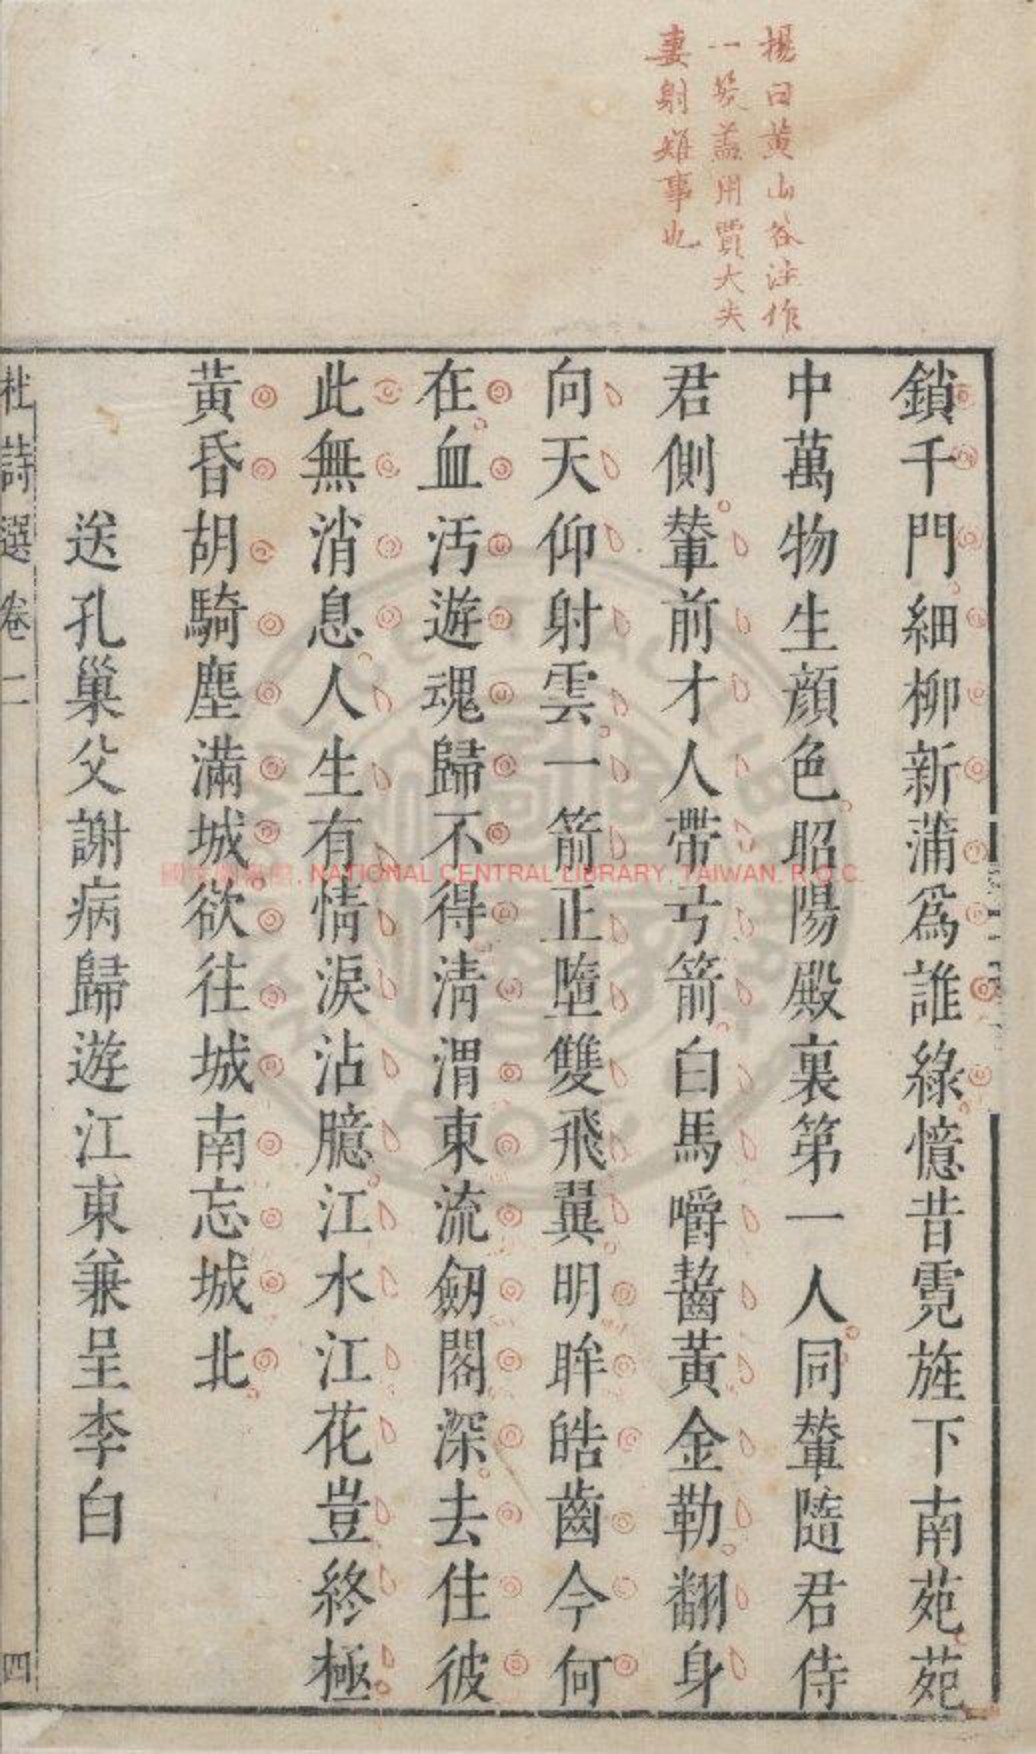 楊曰黄山谷注作
一笑蓋用賈大夫
妻射雉事也
鎖千門細柳新蒲爲誰綠憶昔霓旌下南苑苑
中萬物生顔色昭陽殿裏第一人同輦隨君侍
君側輦前才人帶弓箭白馬嚼齧黃金勒翻身
向天仰射雲一箭正墮雙飛翼明眸皓齒今何
在血汚遊魂歸不得清渭東流劒閣深去住彼
此無消息人生有情淚沾臆江水江花豈終極
黄昏胡騎塵滿城欲往城南忘城北
送孔巢父謝病歸遊江東兼呈李白
杜詩選卷二
四
國家圖書館. NATIONAL CENTRAL LIBRARY, TAIWAN. R.O.C.